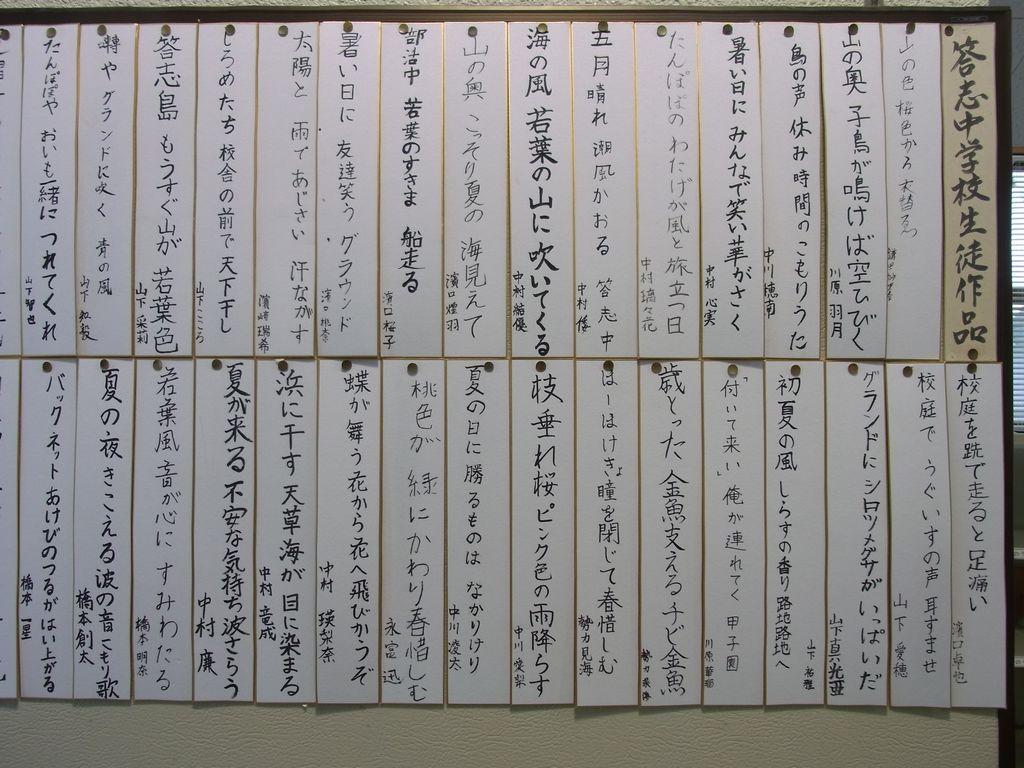 答志中学校生徒作品
山の色 桜色から 衣替え
山の奥 子鳥が鳴けば空ひびく
川原 羽月
鳥の声 休み時間のこもりうた
中川 穂南
暑い日に みんなで笑い 華がさく
中村 心実
たんぽぽの わたげが風と 旅立つ日
中村 璃々花
五月晴れ 潮風かおる 答志中
中村 修
海の風 若葉の山に 吹いてくる
中村 結優
山の奥 こっそり夏の 海見えて
濱口 煌羽
部活中 若葉のすきま 船走る
濱口 桜子
暑い日に 友達笑う グラウンド
濱口 桃奈
太陽と 雨で あじさい 汗ながす
濱崎 瑞希
しろめたち 校舎の前で 天下干し
山下 こころ
答志島 もうすぐ山が 若葉色
山下 采莉
囀や グランドに吹く 青の風
山下
たんぽぽや おいも一緒に つれてくれ
山下 智也
校庭を 跣で走ると 足痛い
濱口 卓也
校庭で うぐいすの声 耳すませ
山下 愛穂
グランドに シロツメグサが いっぱいだ
山下 真光亜
初夏の風 しらすの香り 路地路地へ
山下
「付いて来い」 俺が連れてく 甲子園
川原
歳とった 金魚支える チビ金魚
勢力
ほーほけきょ 瞳を閉じて 春惜しむ
勢力 見海
枝垂れ桜 ピンク色の 雨降らす
中川 愛梨
夏の日に 勝るものは なかりけり
中川 凌太
桃色が 緑にかわり 春惜しむ
永富 迅
蝶が舞う 花から花へ 飛びかうぞ
中村 瑛梨奈
浜に干す 天草海が 目に染まる
中村 竜成
夏が来る 不安な気持ち 波さらう
中村 廉
若葉風 音が心に すみわたる
橋本 明奈
夏の夜 きこえる波の音 こもり歌
橋本 創太
バックネット あけびのつるが はい上がる
橋本 一星